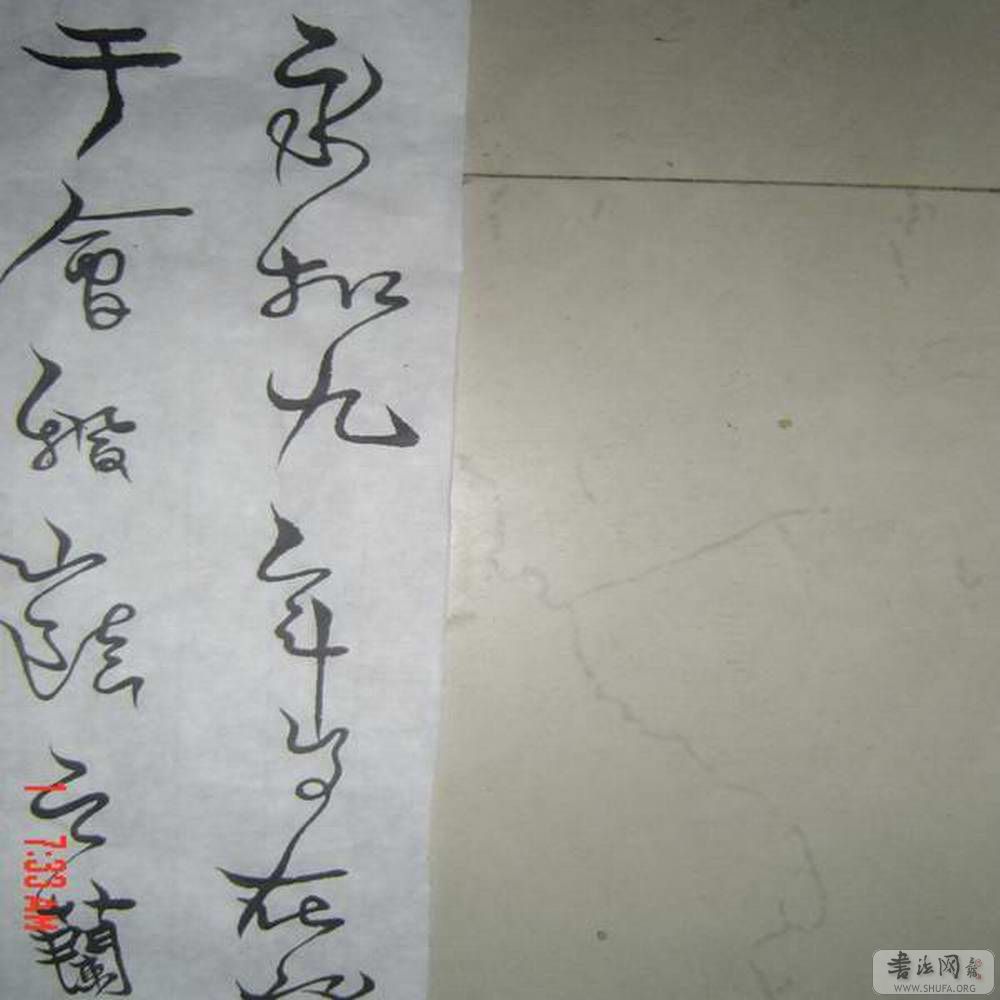 永和九年歲在
于會稽山陰之蘭
1 7:33 AM
書法网
WWW.SHUFA.ORG